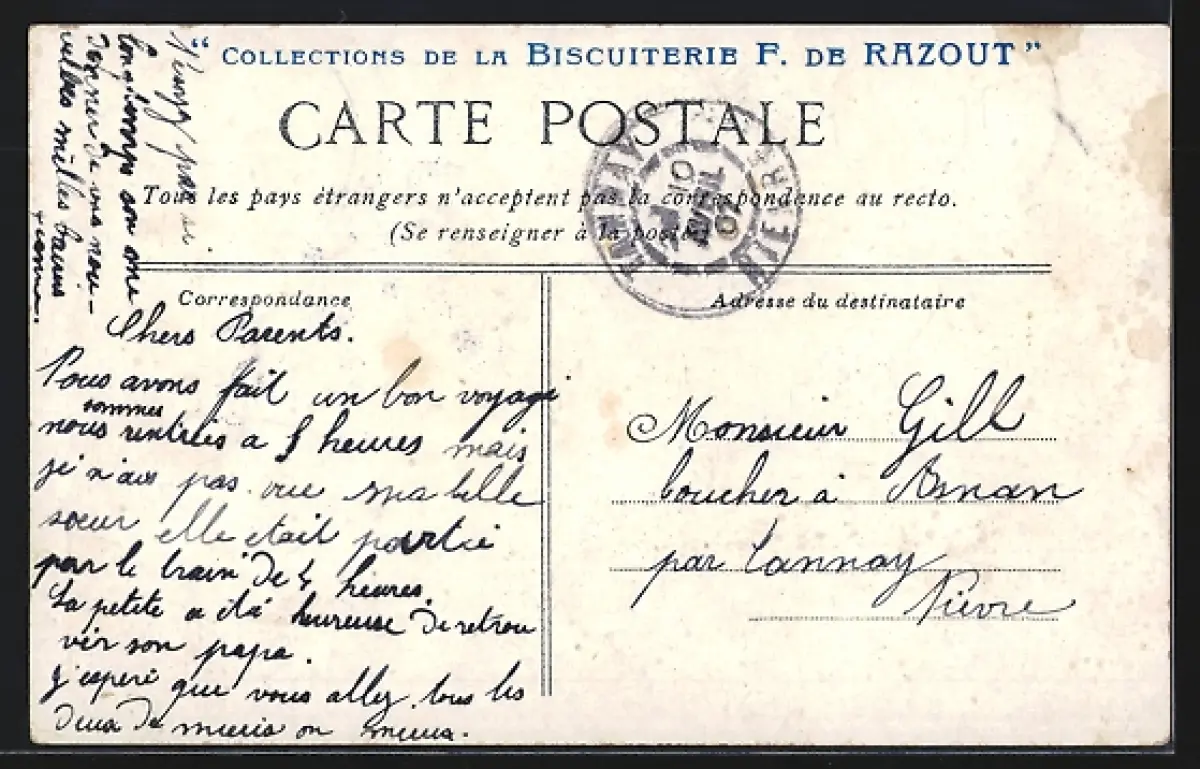 “ COLLECTIONS DE LA BISCUITERIE F. DE RAZOUT ”
CARTE POSTALE
Tous les pays étrangers n'acceptent pas la correspondance au recto.
(Se renseigner à la poste)
10
AVRIL
07
NIEVRE
Correspondance
Chers Parents.
Nous avons fait un bon voyage
sommes
nous rentrées a 8 heures mais
je n'ai pas vue ma belle
sœur elle etait partie
par le train de 4 heures.
La petite a été heureuse de retrou
vir son papa.
J'espere que vous allez tous les
deux de mieux en mieux.
pas si
longtemps son one
Donner de vos nou-
velles milles baisers
Adresse du destinataire
Monsieur Gill
boucher à Asnan
par Tannay
Nièvre